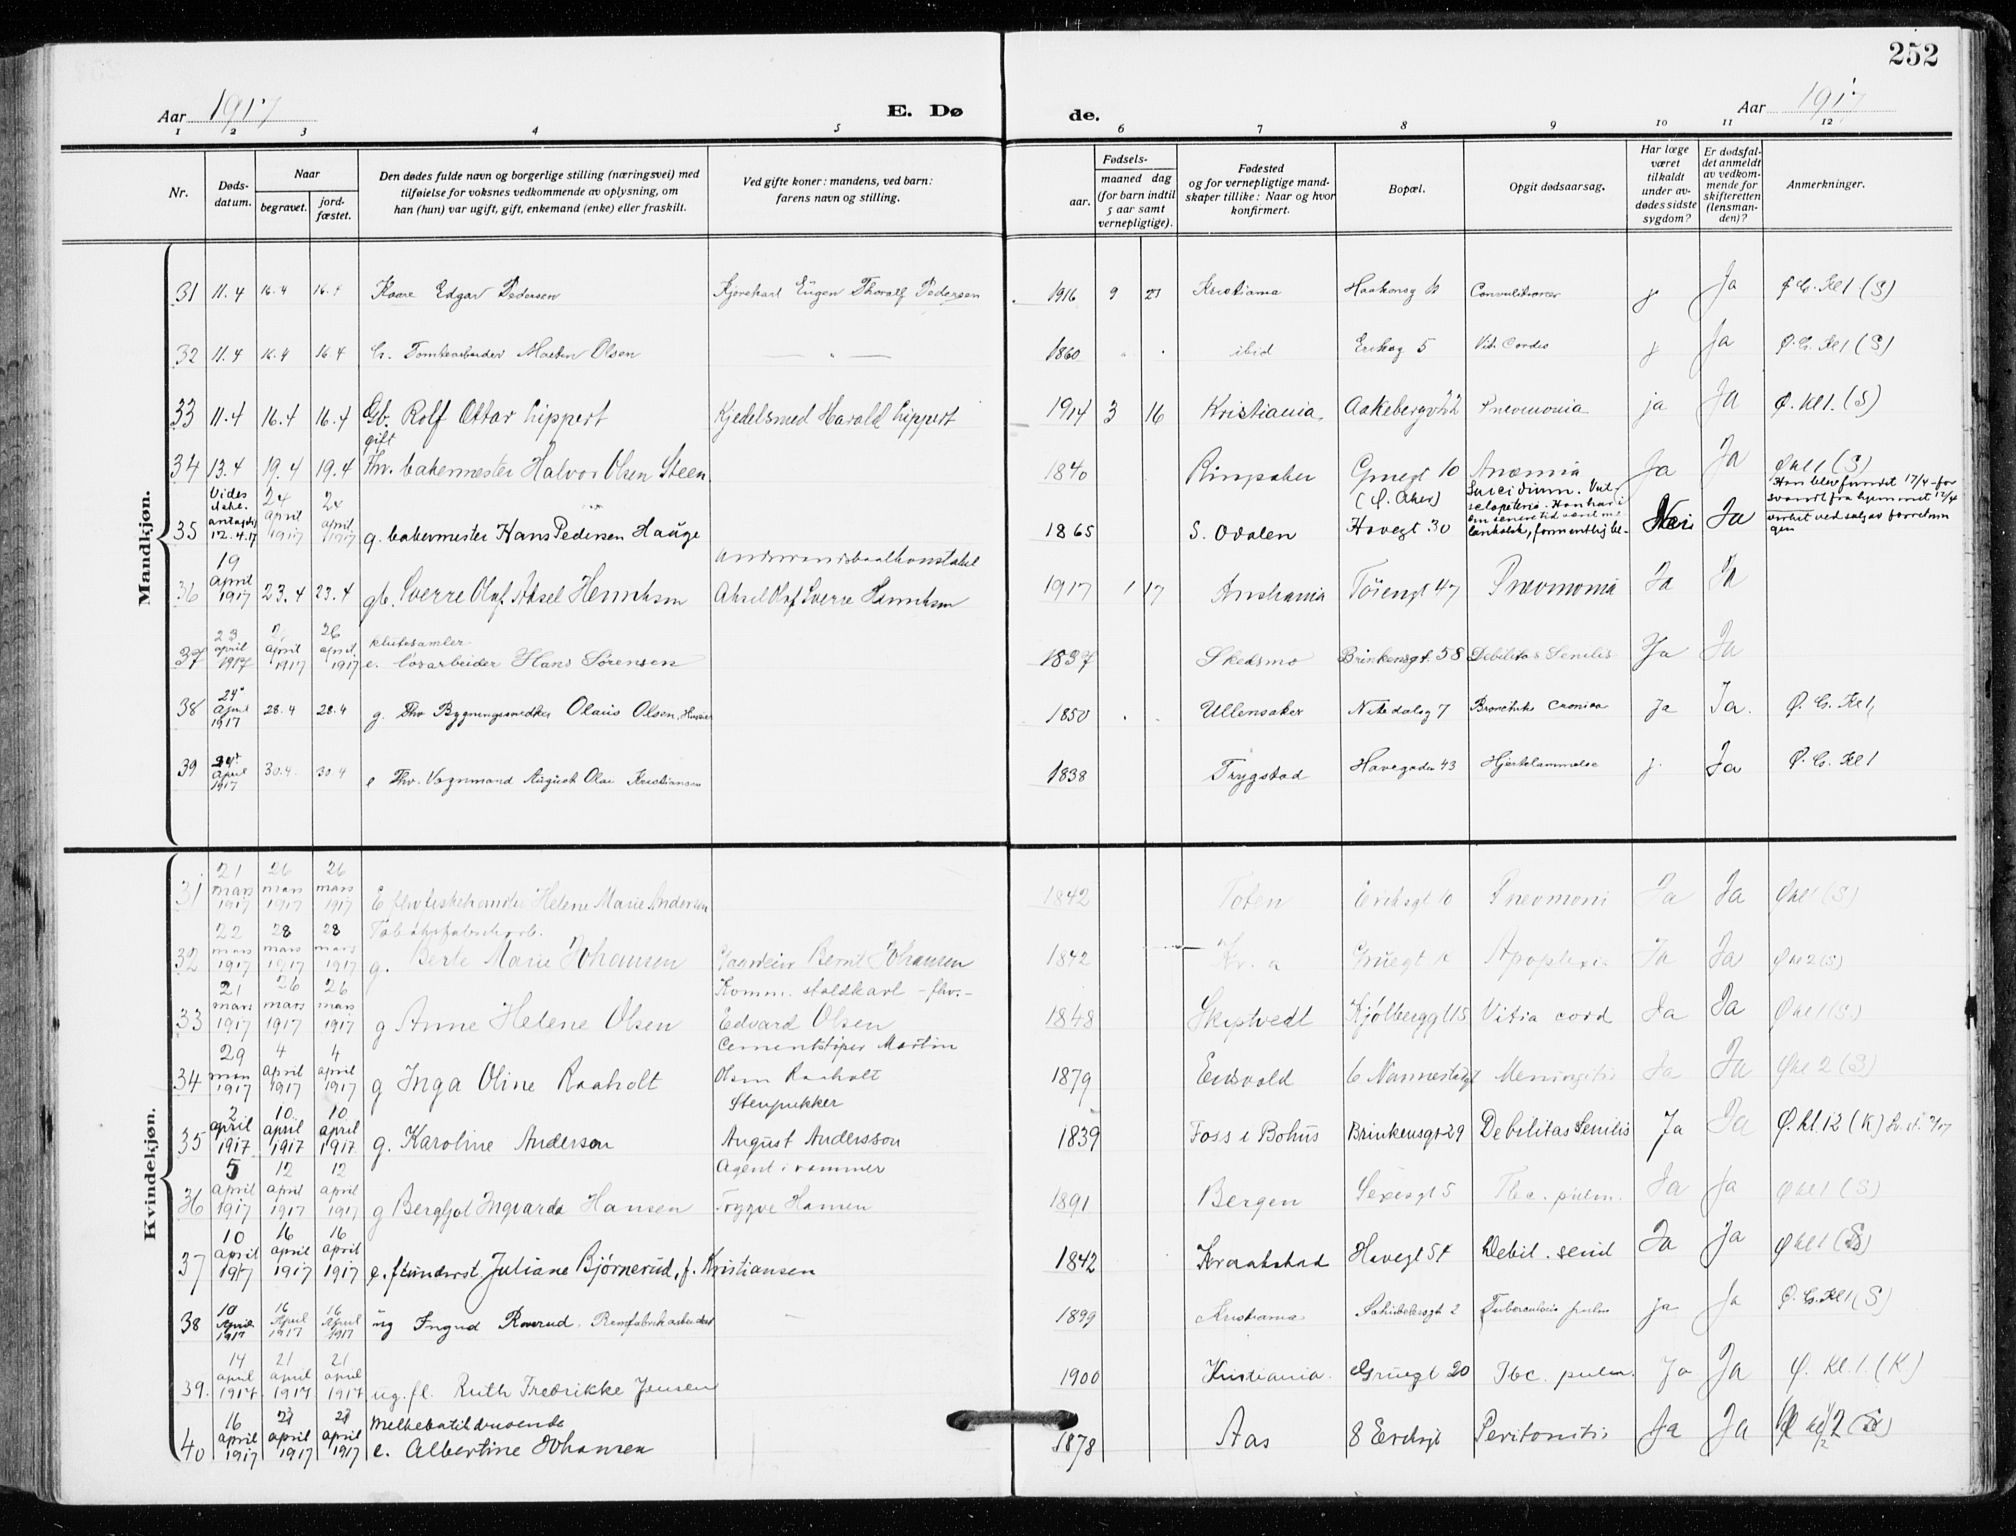 252
Aar 1917 E. Dø de. Aar 1917
1 2 3 4 5 6 7 8 9 10 11 12
Nr. Døds-datum. Naar begravet. jord-fæstet. Den dødes fulde navn og borgerlige stilling (næringsvei) med tilføielse for voksnes vedkommende av oplysning, om han (hun) var ugift, gift, enkemand (enke) eller fraskilt. Ved gifte koner: mandens, ved barn: farens navn og stilling. Fødsels- aar. maaned dag (for barn indtil 5 aar samt vernepligtige). Fødested og for vernepligtige mand-skaper tillike: Naar og hvor konfirmert. Bopæl. Opgit dødsaarsag. Har læge været tilkaldt under av-dødes sidste sygdom? Er dødsfal-det anmeldt av vedkom-mende for skifteretten (lensman-den)? Anmerkninger.
Mandkjøn.
31 11.4 16.4 16.4 Kaare Edgar Pedersen Kjørekarl Eugen Thoralf Pedersen 1916 9 21 Kristiania Haakonsg Convulsioner j Ja Ø. G. Kl 1 (S)
32 11.4 16.4 16.4 G. Tomtearbeider Morten Olsen — " — 1860 " " ibid Eriksg 5 Vit. Cordis j Ja Ø. G. Kl 1 (S)
33 11.4 16.4 16.4 Gb. Rolf Ottar Lippert Kjedelsmed Harald Lippert 1914 3 16 Kristiania Aakebergv 22 Pneumonia ja Ja Ø. Kl 1. (S)
34 13.4 19.4 19.4 gift Fhv. bakermester Halvor Olsen Steen 1840 Ringsaker Gruegt 10 Anæmia Ja Ja Ø kl 1 (S)
35 Vides ikke. antagelig 12.4.17 24 april 1917 24 april 1917 g. bakermester Hans Pedersen Hauge 1865 S. Odalen (Ø. Aker) Havegt 30 Suicidium. Nei Ja Han blev fundet 17/4 forsvandt fra hjemmet 12/4
36 19 April 1917 23.4 23.4 gb. Sverre Olaf Aksel Henriksen Aksel Olaf Sverre Henriksen 1917 1 17 Kristiania Tøiengt 47 Pneumonia Ja Ja
37 23 april 1917 26 april 1917 26 april 1917 klutesamler e. Løsarbeider Hans Sørensen 1837 Skedsmo Brinkensgt. 58 Debilitas Senilis Ja Ja
38 24 April 1917 28.4 28.4 g. Fhv Bygningssnedker Olaus Olsen 1850 " " Ullensaker Nitedalsg 7 Bronchitis Cronica Ja Ja. Ø. G. Kl 1
39 24 April 1917 30.4. 30.4 e Fhv. Vognmand August Olai Kristiansen 1838 Trygstad Havegaden 43 Hjertelammelse j. Ja Ø. G. Kl 1
Kvindekjøn.
31 21 mars 1917 26 mars 1917 26 mars 1917 E fhv fiskehandler Helene Marie Andersen 1842 Toten Eriksgt 10 Pneumoni Ja Ja Økl 1 (S)
32 22 mars 1917 28 mars 1917 28 mars 1917 Tobaksfabrikarb. g. Berte Marie Johansen Bernt Johansen 1842 Kr. a Gruegt Apoplexi Ja Ja Økl 2 (S)
33 21 mars 1917 26 mars 1917 26 mars 1917 g Anne Helene Olsen Komm. staldkarl - fhv.- Edvard Olsen 1848 Skiptvedt Kjølberggt 15 Vitia cord Ja Ja Økl 1 (S.)
34 29 mars 1917 4 april 1917 4 april 1917 g Inga Oline Raaholt Cementstøper Martin Olsen Raaholt 1879 Eidsvold 6 Nannestadgt Meningitis Ja Ja Økl 2 (S)
35 2 april 1917 10 april 1917 10 april 1917 g. Karoline Anderson Stenpukker August Andersson 1839 Foss i Bohus Brinkensgt 29 Debilitas Senilis Ja Ja Ø. kl. 12 (K)
36 5 april 1917 12 april 1917 12 april 1917 g Bergljot Ingvarda Hansen Agent i rammer Trygve Hansen 1891 Bergen Sexesgt 5 Tbc. pulm. Ja Ja Økl 1 (S)
37 10 april 1917 16 april 1917 16 april 1917 e. f underst Juliane Bjørnerud, f. Kristiansen 1842 Kraakstad Havegt 54 Debil. senil Ja Ja Ø kl 1 (S)
38 10 April 1917 16 April 1917 16 April 1917 ug Ingrid Roverud. Remfabrikarbeider — 1899 Kristiania Schübelersgt 2 Tuberculosis pulm ja Ja Ø. G. Kl 1 (S)
39. 14 april 1917 21 april 1917 21 april 1917 ug. fl. Ruth Fredrikke Jensen 1900 Kristiania. Gruegt 20 Tbc. pulm. Ja Ja Ø. Kl. 1. (K)
40 16 april 1917 23 april 1917 23 april 1917 Melkebutikdrivende e. Albertine Johansen 1878 Aas 8 Eriksgt Peritonitis Ja Ja